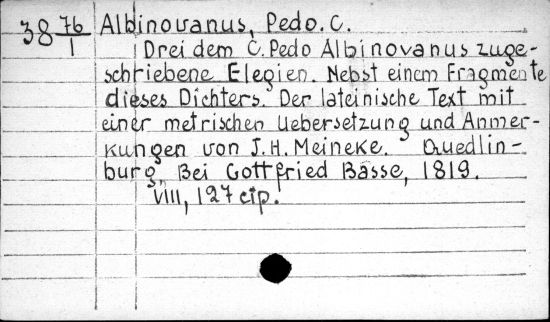 38 76/1 Albinovanus, Pedo. C.
Drei dem C. Pedo Albinovanus zuge-
schriebene Elegien. Nebst einem Fragmente
dieses Dichters. Der lateinische Text mit
einer metrischen Uebersetzung und Anmer-
kungen von J. H. Meineke. Quedlin-
burg, Bei Gottfried Basse, 1819.
VIII, 127 стр.